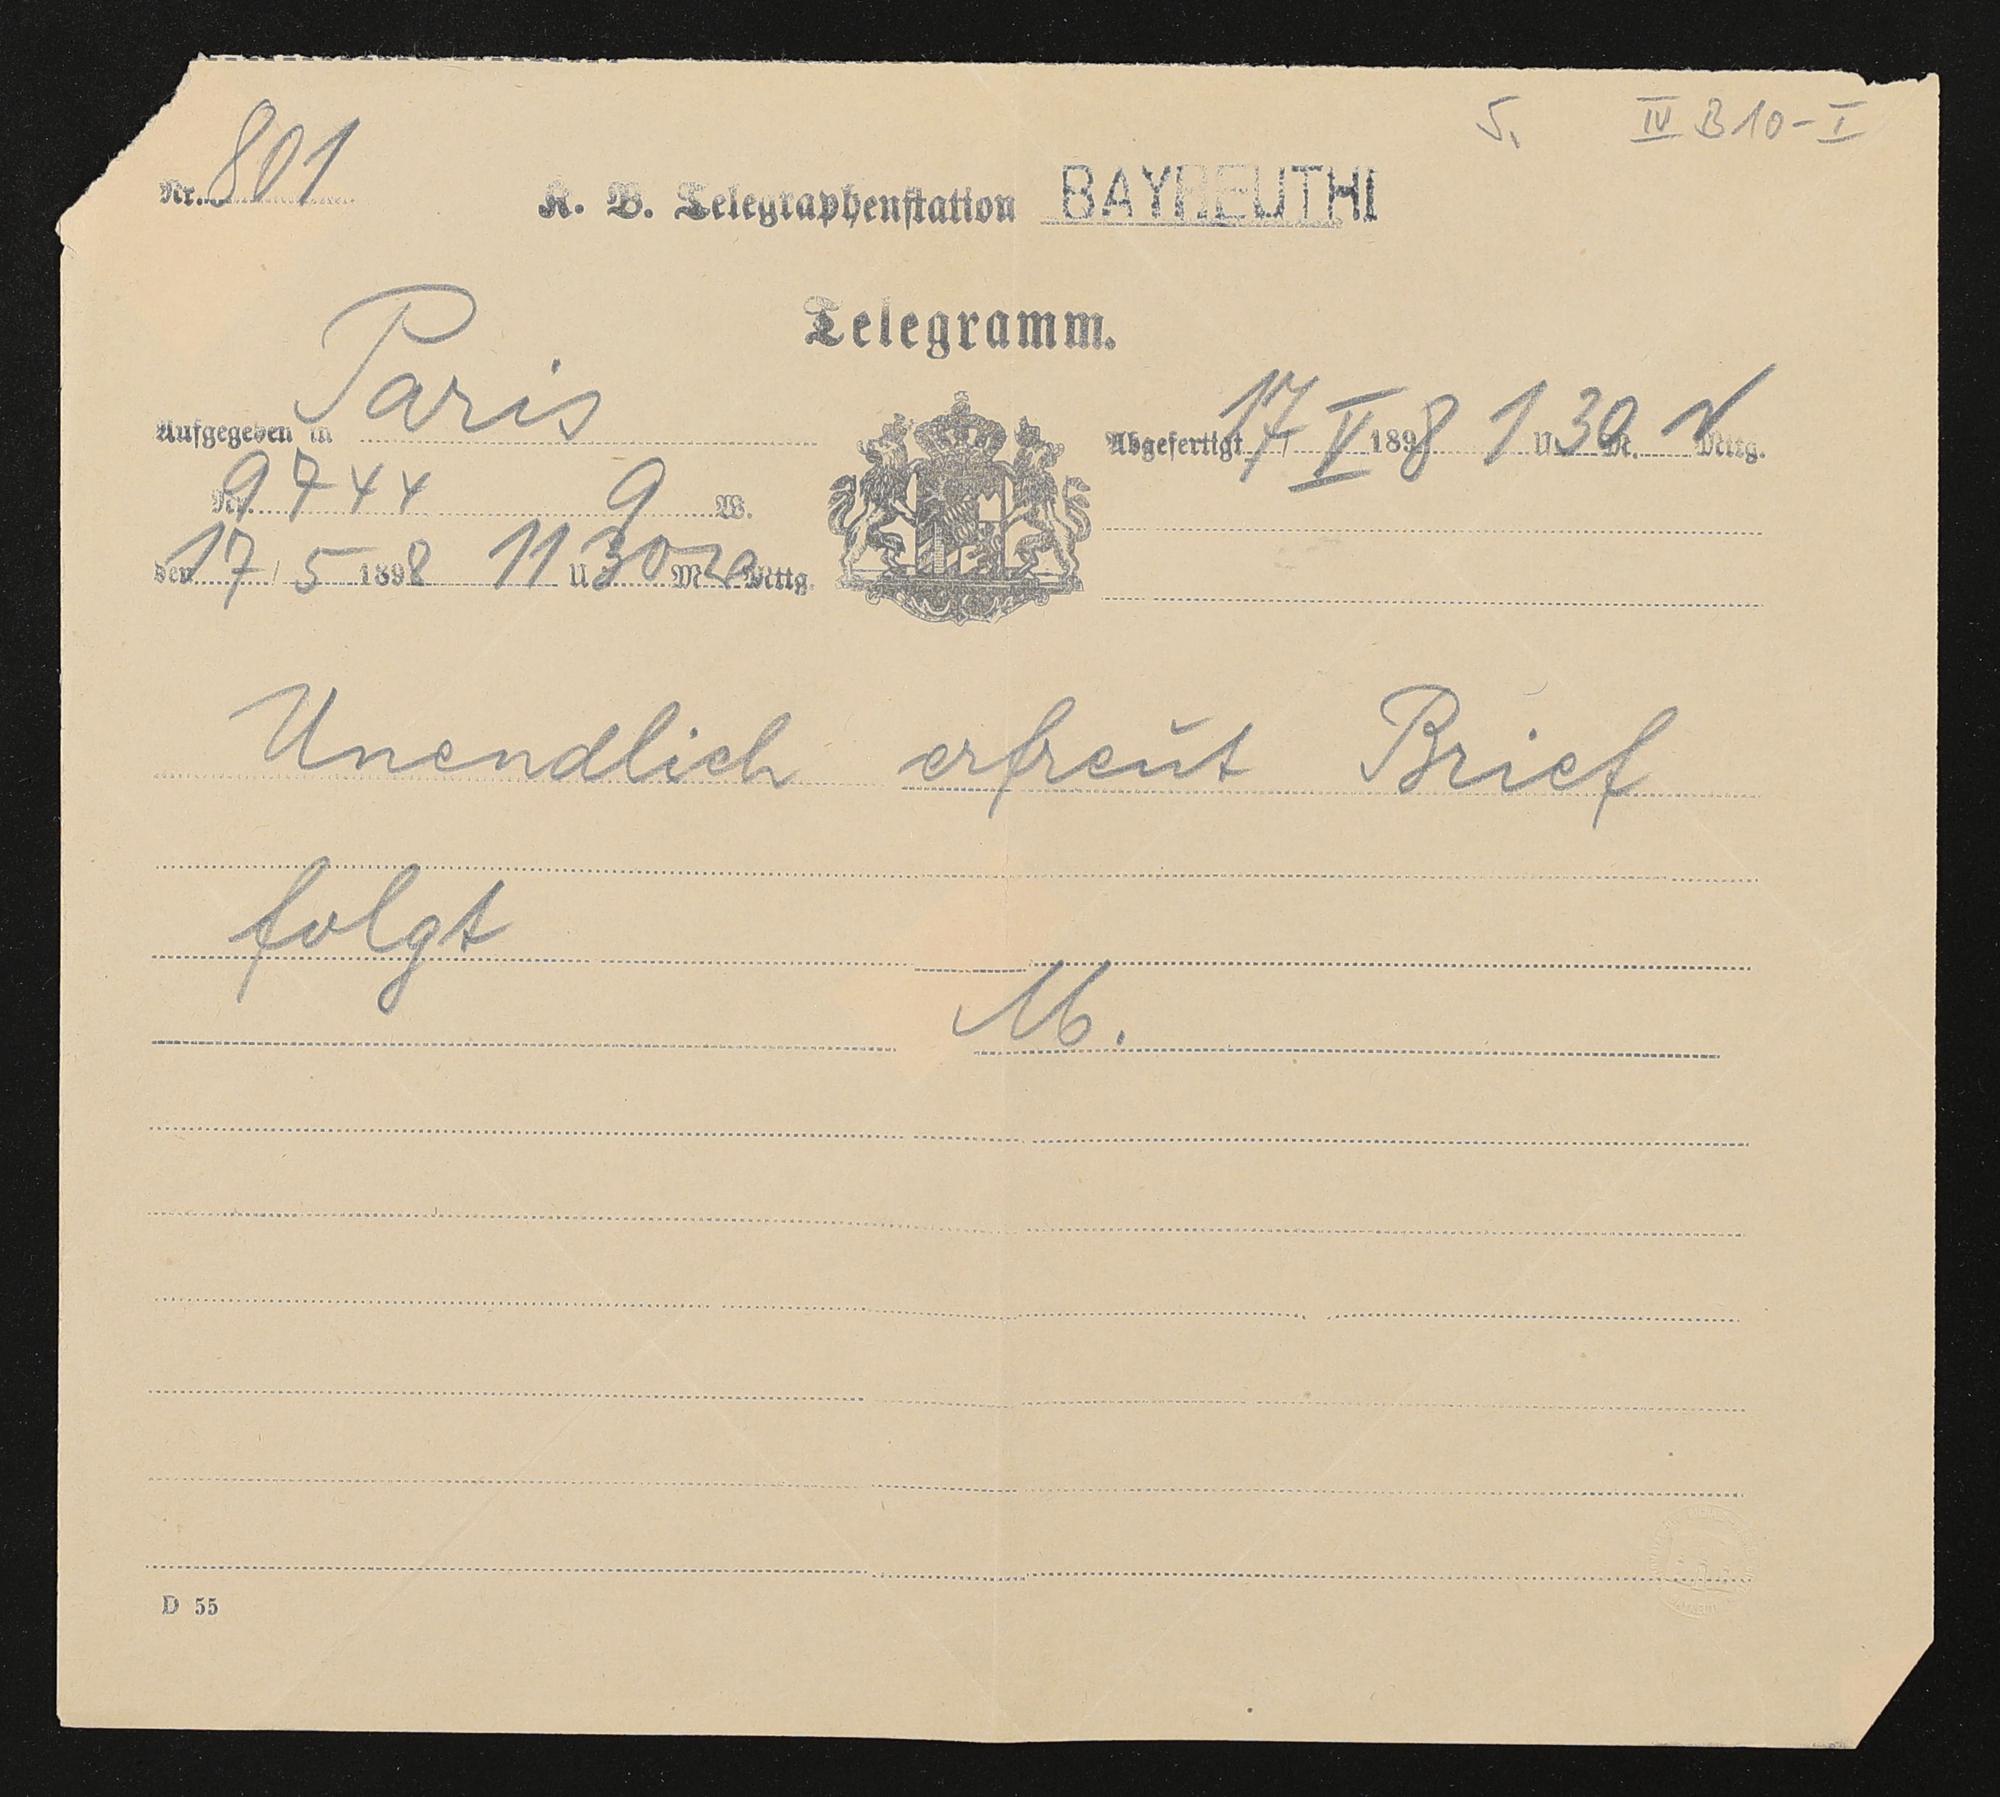 5. IV B 10-I
Nr. 801
K. B. Telegraphenstation BAYREUTH I
Telegramm.
Aufgegeben in Paris
Nr. 9744 9 W.
den 17/5 1898 11 U 30 M Mttg.
Abgefertigt 17/V 1898 1 U 30 M. N Mttg.
Unendlich erfreut Brief
folgt
M.
D 55